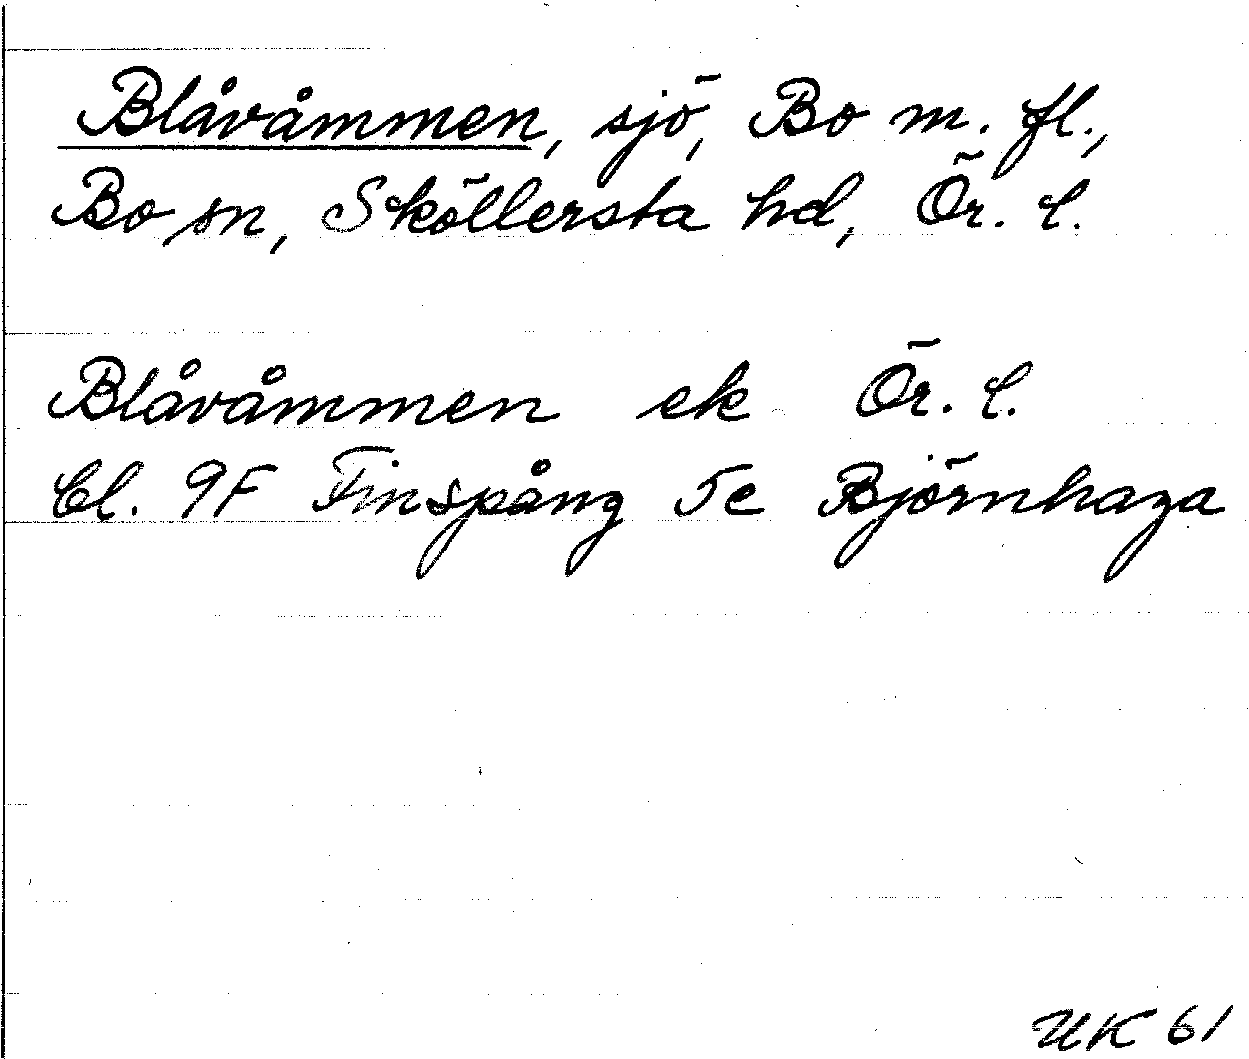 Blåvåmmen, sjö, Bo m. fl.,
Bo sn, Sköllersta hd, Ör. l.
Blåvåmmen ek Ör. l.
bl. 9F Finspång 5c Björnhaga
UK 61